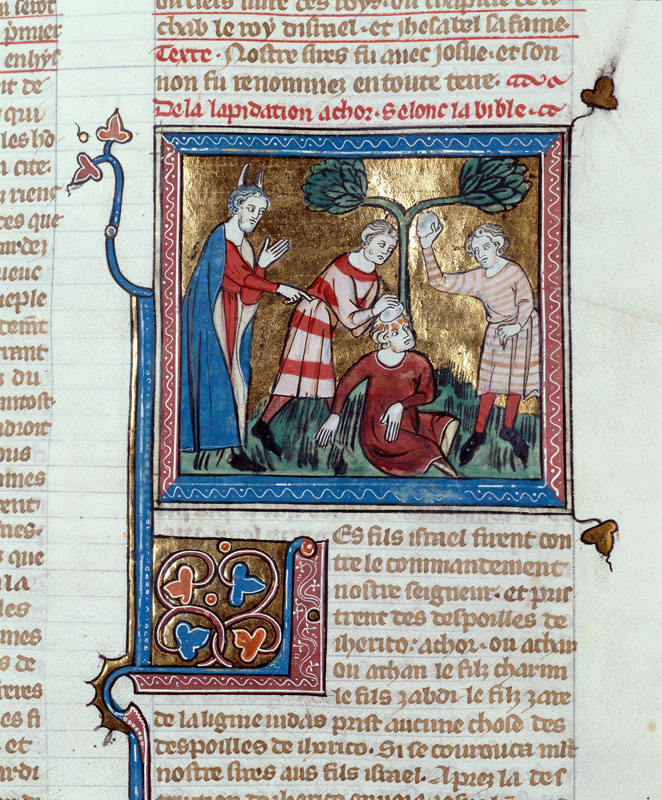 chab le roy disrael · et jhesabel sa fame
Texte · Nostre sires fu avec Josue · et son
non fu renomme en toute terre ·
De la lapidation achor · Selonc la bible ·
Les fils israel firent con
tre le commandement
nostre seigneur · et pris
trent des despoilles de
iherico · achor · ou achan
ou athan le filz charmi
le fils zabdi le filz zare
de la lignie iudas prist aucune chose des
despoilles de iherico · Si se courouca mlt
nostre sires aus fils israel · Apres la des
p̄mier
enhys
nt de
qui
les ho
a cite ·
rienc
ces que
ueple
rrant
du
ndroit
ous
ames
rent
que
a la
les
mes
s de
reres
es fi
· et
ardi